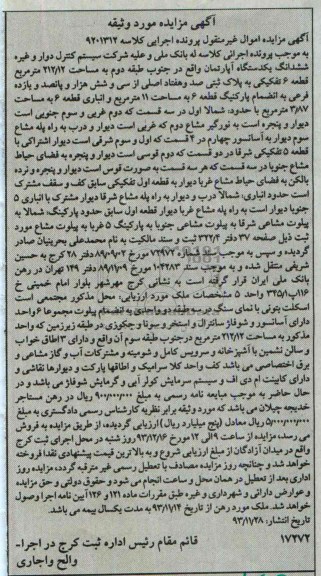 آگهی مزایده مورد وثیقه
آگهی مزایده اموال غیرمنقول پرونده اجرایی کلاسه ۹۲۰۱۳۱۲
به موجب پرونده اجرائی کلاسه له بانک ملی و علیه شرکت سیستم کنترل دوار و غیره
ششدانگ یکدستگاه آپارتمان واقع در جنوب طبقه دوم به مساحت ۲۱۲/۱۲ مترمربع
قطعه ۶ تفکیکی به پلاک ثبتی صد و هفتاد اصلی از سی و شش هزار و پانصد و یازده
فرعی به انضمام پارکینگ قطعه ۶ به مساحت ۱۱ مترمربع و انباری قطعه ۶ به مساحت
۳/۸۷ مترمربع با حدود: شمالا اول در سه قسمت که دوم غربی و سوم جنوبی است
دیوار و پنجره است به نورگیر مشاع دوم که غربی است دیوار و درب به راه پله مشاع
سوم دیوار به آسانسور چهارم در ۴ قسمت که اول و سوم شرقی است دیوار اشتراکی با
قطعه ۵ تفکیکی شرقا در دو قسمت که دوم قوسی است دیوار و پنجره به فضای حیاط
مشاع جنوبا در سه قسمت که هر سه قسمت به صورت قوس است دیوار و پنجره و نرده
بالکن به فضای حیاط مشاع غربا دیوار به قطعه اول تفکیکی سابق کف و سقف مشترک
است حدود انباری: شمالا درب و دیوار به راه پله مشاع شرقا دیوار مشترک با انباری ۵
جنوبا دیوار است به راه پله مشاع غربا دیوار قطعه اول سابق حدود پارکینگ: شمالا به
پیلوت مشاعی شرقا به پیلوت مشاعی جنوبا به پارکینگ ۵ غربا به پیلوت مشاع مورد
ثبت ذیل صفحه ۳۷ دفتر ۲۲۲/۴ ثبت و سند مالکیت به نام محمدعلی بحرینیان صادر
گردیده و سپس به موجب سند قطعی ۷۲۹۷۲ مورخ ۸۹/۰۹/۰۲ دفتر ۲۸ کرج به حسین
شریفی منتقل شده و به موجب سند ۱۰۴۲۸۳ مورخ ۸۹/۱۱/۰۹ دفتر ۱۴۹ تهران در رهن
بانک ملی ایران قرار گرفته است به نشانی کرج مهرشهر بلوار امام خمینی خ
۱۱۶پ۳۴۵/۱ واحد ۵ مشخصات ملک مورد ارزیابی: محل مذکور مجتمعی است
اسکلت بتونی با نمای سنگ در سه طبقه دو واحدی به انضمام پیلوت مجموعا ۶ واحد
دارای آسانسور و شوفاژ سانترال و استخر و سونا و جکوزی در طبقه زیرزمین که واحد
مذکور به مساحت ۲۱۲/۱۲ مترمربع در جنوب طبقه سوم آن واقع و دارای ۳ اطاق خواب
و سالن نشمین با آشپزخانه و سرویس کامل و شومینه و مشترکات آب و گاز مشاعی و
برق اختصاصی می باشد کف واحد کلا سرامیک و اطاقها پارکت و دیوارها نقاشی و
دارای کابینت ام دی اف و سیستم سرمایش کولر آبی و گرمایش شوفاژ می باشد و در
حال حاضر به موجب مبایعه نامه رسمی به مبلغ ۹۰۰/۰۰۰/۰۰۰ ریال در رهن مستاجر
خدیجه چیلان می باشد که مورد وثیقه برابر نظریه کارشناس رسمی دادگستری به مبلغ
۵/۰۰۰/۰۰۰/۰۰۰ ریال معادل (پنج میلیارد ریال) ارزیابی گردیده، از طریق مزایده به فروش
می رسد، مزایده از ساعت ۹ الی ۱۲ مورخ ۹۳/۱۲/۱۶ روز شنبه در محل اجرای ثبت کرج
واقع در میدان آزادگان از مبلغ ارزیابی شروع و به بالاترین قیمت پیشنهادی نقدا فروخته
خواهد شد و چنانچه روز مزایده مصادف با تعطیل رسمی غیر مترقبه گردد، مزایده روز
اداری بعد از تعطیل در همان محل و ساعت انجام می شود و حقوق دولتی و حق مزایده
و عوارض دارائی و شهرداری و غیره طبق مقررات ماده ۱۲۱ و ۱۲۶ آیین نامه اجرا وصول
خواهد شد. ملک مورد رهن از تاریخ ۹۳/۱/۱۴ به مدت یکسال بیمه می باشد.
تاریخ انتشار: ۹۳/۱۱/۲۸
۱۷۲۷۲ قائم مقام رئیس اداره ثبت کرج در اجرا-
والح واجاری